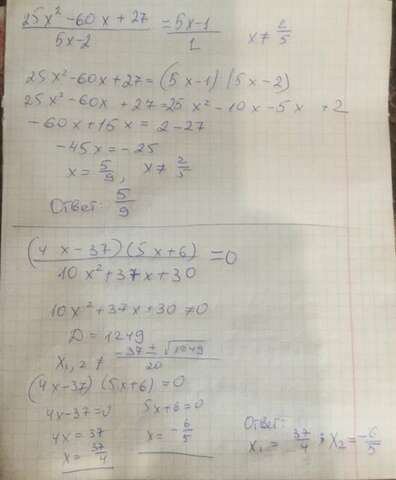 25x² - 60x + 27 / 5x - 2 = 5x - 1 / 1    x ≠ 2/5
25x² - 60x + 27 = (5x - 1)(5x - 2)
25x² - 60x + 27 = 25x² - 10x - 5x + 2
- 60x + 15x = 2 - 27
- 45x = - 25
x = 5/9,    x ≠ 2/5
Ответ: 5/9
(4x - 37)(5x + 6) / 10x² + 37x + 30 = 0
10x² + 37x + 30 ≠ 0
D = 1249
x₁,₂ ≠ -37 ± √1049 / 20
(4x - 37)(5x + 6) = 0
4x - 37 = 0    5x + 6 = 0
4x = 37    x = -6/5
x = 37/4
Ответ:
x₁ = 37/4 ; x₂ = -6/5